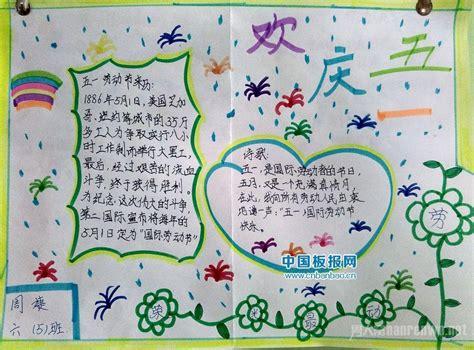 欢庆五一
五一劳动节来历:
1886年5月1日,美国芝加
哥、纽约等城市的35万
多工人为争取实行八小
时工作制而举行大罢工,
最后,经过艰苦的流血
斗争,终于获得胜利。
为纪念,这次伟大的斗争,
第二国际宣布将每年的
5月1日定为“国际劳动节”
诗歌
五一,是国际劳动者的节日
五月,又是一个充满真情月
在此,我向所有劳动人民由衷
地道一声:“五一”国际劳动节
快乐。
中国板报网
www.cnbanbao.cn
劳
动
最
光
荣
周雄
六(5)班